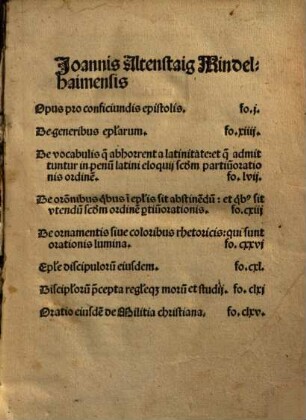 Joannis Altenstaig Mindel-
haimensis
Opus pro conficiundis epistolis. fo.j.
De generibus epl̄arum. fo.xiiij.
De vocabulis q̄ abhorrent a latinitate: et q̄ admit
tuntur in penū latini eloquij scd̄m partiū oratio
nis ordinē. fo.lvij.
De orōnibus qb̄us ī epl̄is sit abstinēdū: et qb̄ꝰ sit
vtendū scd̄m ordinē ꝑtiū orationis. fo.cxiij
De ornamentis siue coloribus rhetoricis: qui sunt
orationis lumina. fo.cxxvj
Epl̄e discipulorū eiusdem. fo.cxl.
Discipl̄orū p̄cepta regl̄eqꝫ morū et studij. fo.clxj
Oratio eiusdē de Militia christiana. fo.clxv.